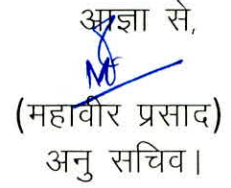 आज्ञा से,
(महावीर प्रसाद)
अनु सचिव।